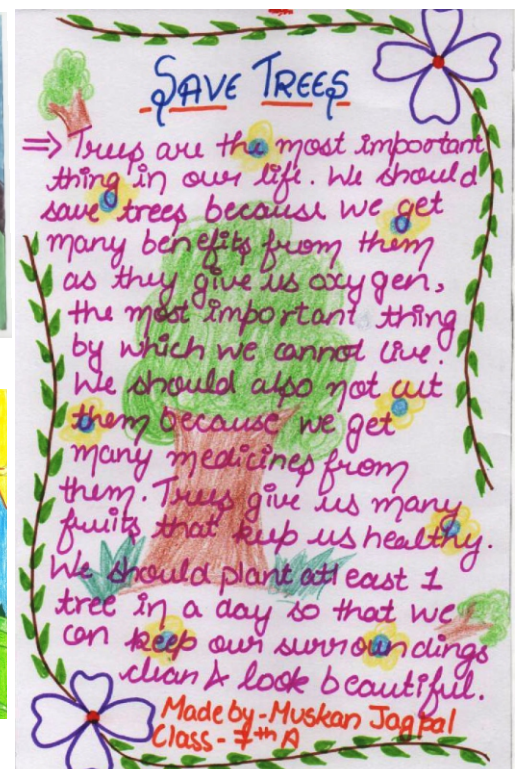 SAVE TREES
⇒ Trees are the most important
thing in our life. We should
save trees because we get
many benefits from them
as they give us oxygen,
the most important thing
by which we cannot live.
We should also not cut
them because we get
many medicines from
them. Trees give us many
fruits that keep us healthy.
We should plant atleast 1
tree in a day so that we
can keep our surroundings
clean & look beautiful.
Made by - Muskan Jagpal
Class - 7th A